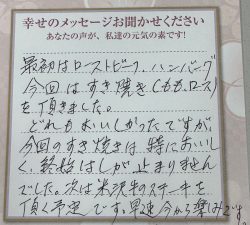 幸せのメッセージお聞かせください
あなたの声が、私達の元気の素です!
最初はローストビーフ、ハンバーグ
今回はすき焼き(もも、ロース)
を頂きました。
どれもおいしかったですが、
今回のすき焼きは、特においし
く、終始はしが止まりません
でした。次は米沢牛のステーキを
頂く予定です。早速今から楽しみです。